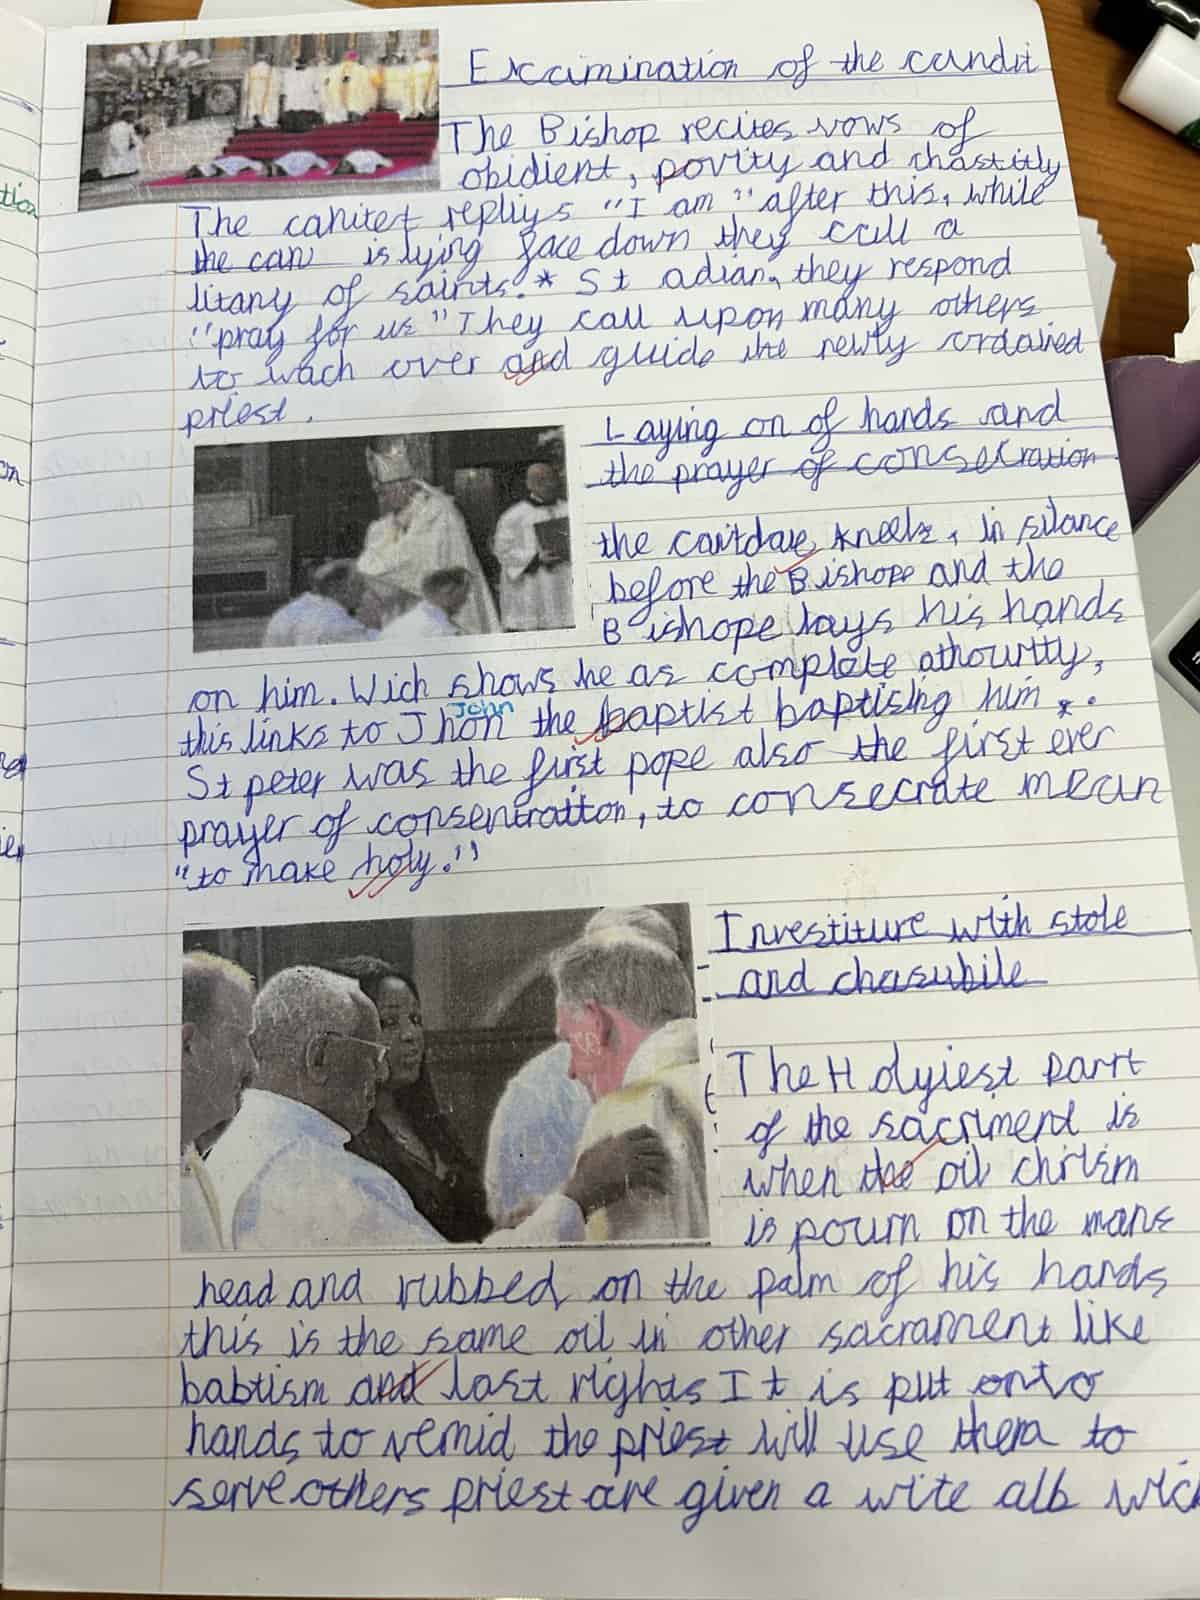 Excamination of the candit
The Bishop recites vows of
obidient, povity and chastitly
The canitet repliys "I am" after this, while
the can is lying face down they call a
litany of saints.* St adian, they respond
"pray for us" They call upon many others
to wach over and guide the newly ordained
priest.
Laying on of hands and
the prayer of consecration
the cantdate kneels, in silance
before the Bishope and the
Bishope lays his hands
on him. Wich shows he as complete athourtty,
John
this links to Jhon the baptist baptising him *.
St peter was the first pope also the first ever
prayer of consentratton, to consecrate mean
"to make holy."
Investiture with stole
and chasubile
The Holyiest parrt
of the sacriment is
when the oil chrism
is pourn on the mans
head and rubbed on the palm of his hands
this is the same oil in other sacrament like
babtism and last rights It is put onto
hands to remid the priest will use them to
serve others priest are given a wite alb wich